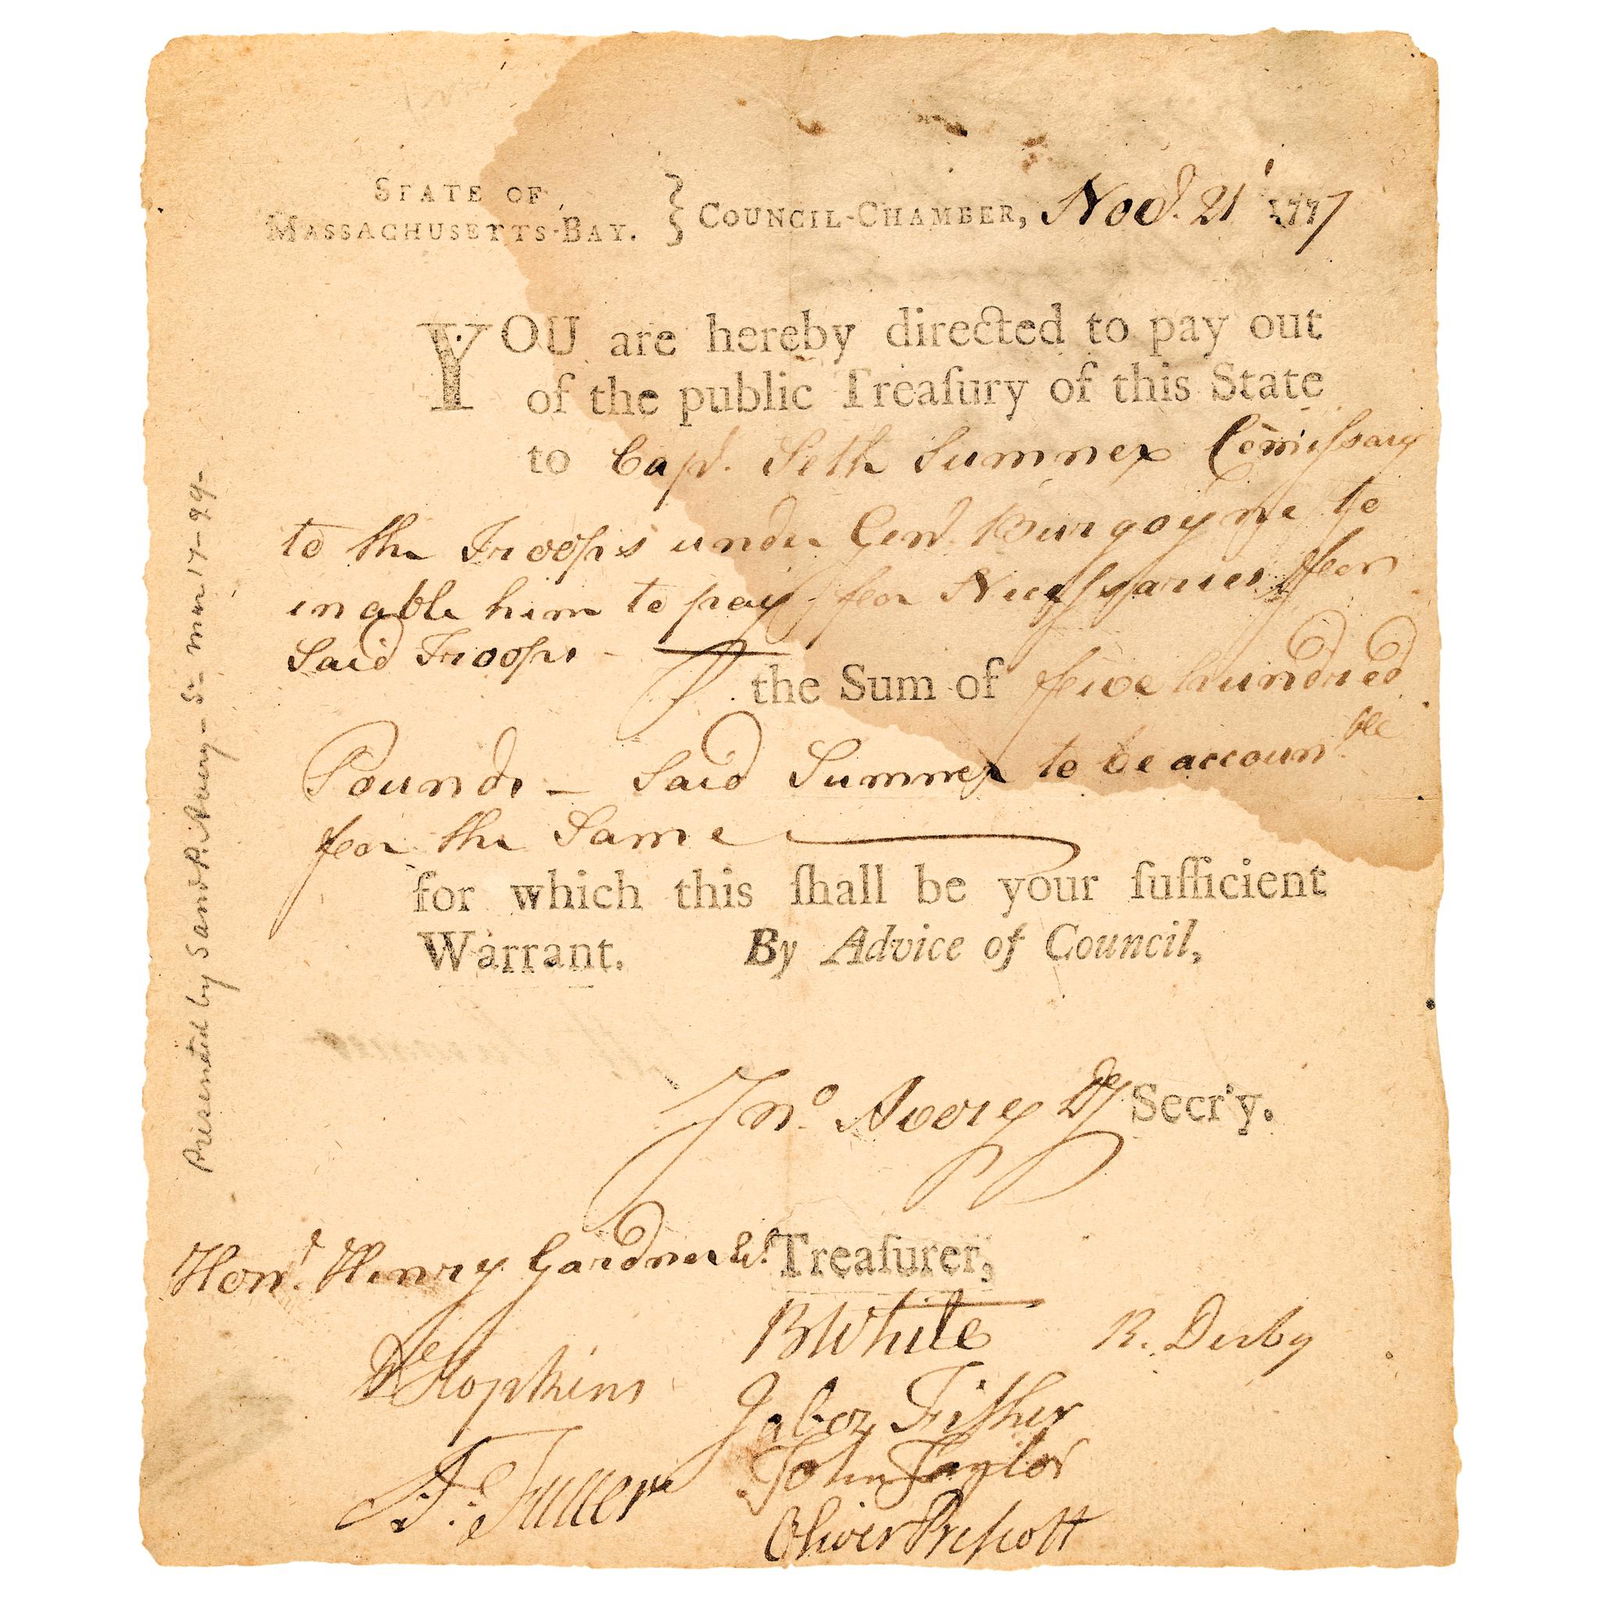 STATE OF
MASSACHUSETTS-BAY. } COUNCIL-CHAMBER, Novr. 21 1777
YOU are hereby directed to pay out
of the public Treaſury of this State
to Capt. Seth Sumner Comiſsary
to the Troops under Genl. Burgoyne to
inable him to pay for Neceſsaries for
Said Troops - the Sum of five hundred
Pounds - Said Sumner to be accounble
for the Same
for which this ſhall be your ſufficient
Warrant. By Advice of Council,
Jno. Avery Dy Secr'y.
Honl. Henry Gardner Esq. Treaſurer,
BWhite R. Derby
D Hopkins
Jabez Fisher
John Taylor
A. Fuller
Oliver Preſcott
Presented by Saml P. Avery - 5 - mm 17-99-